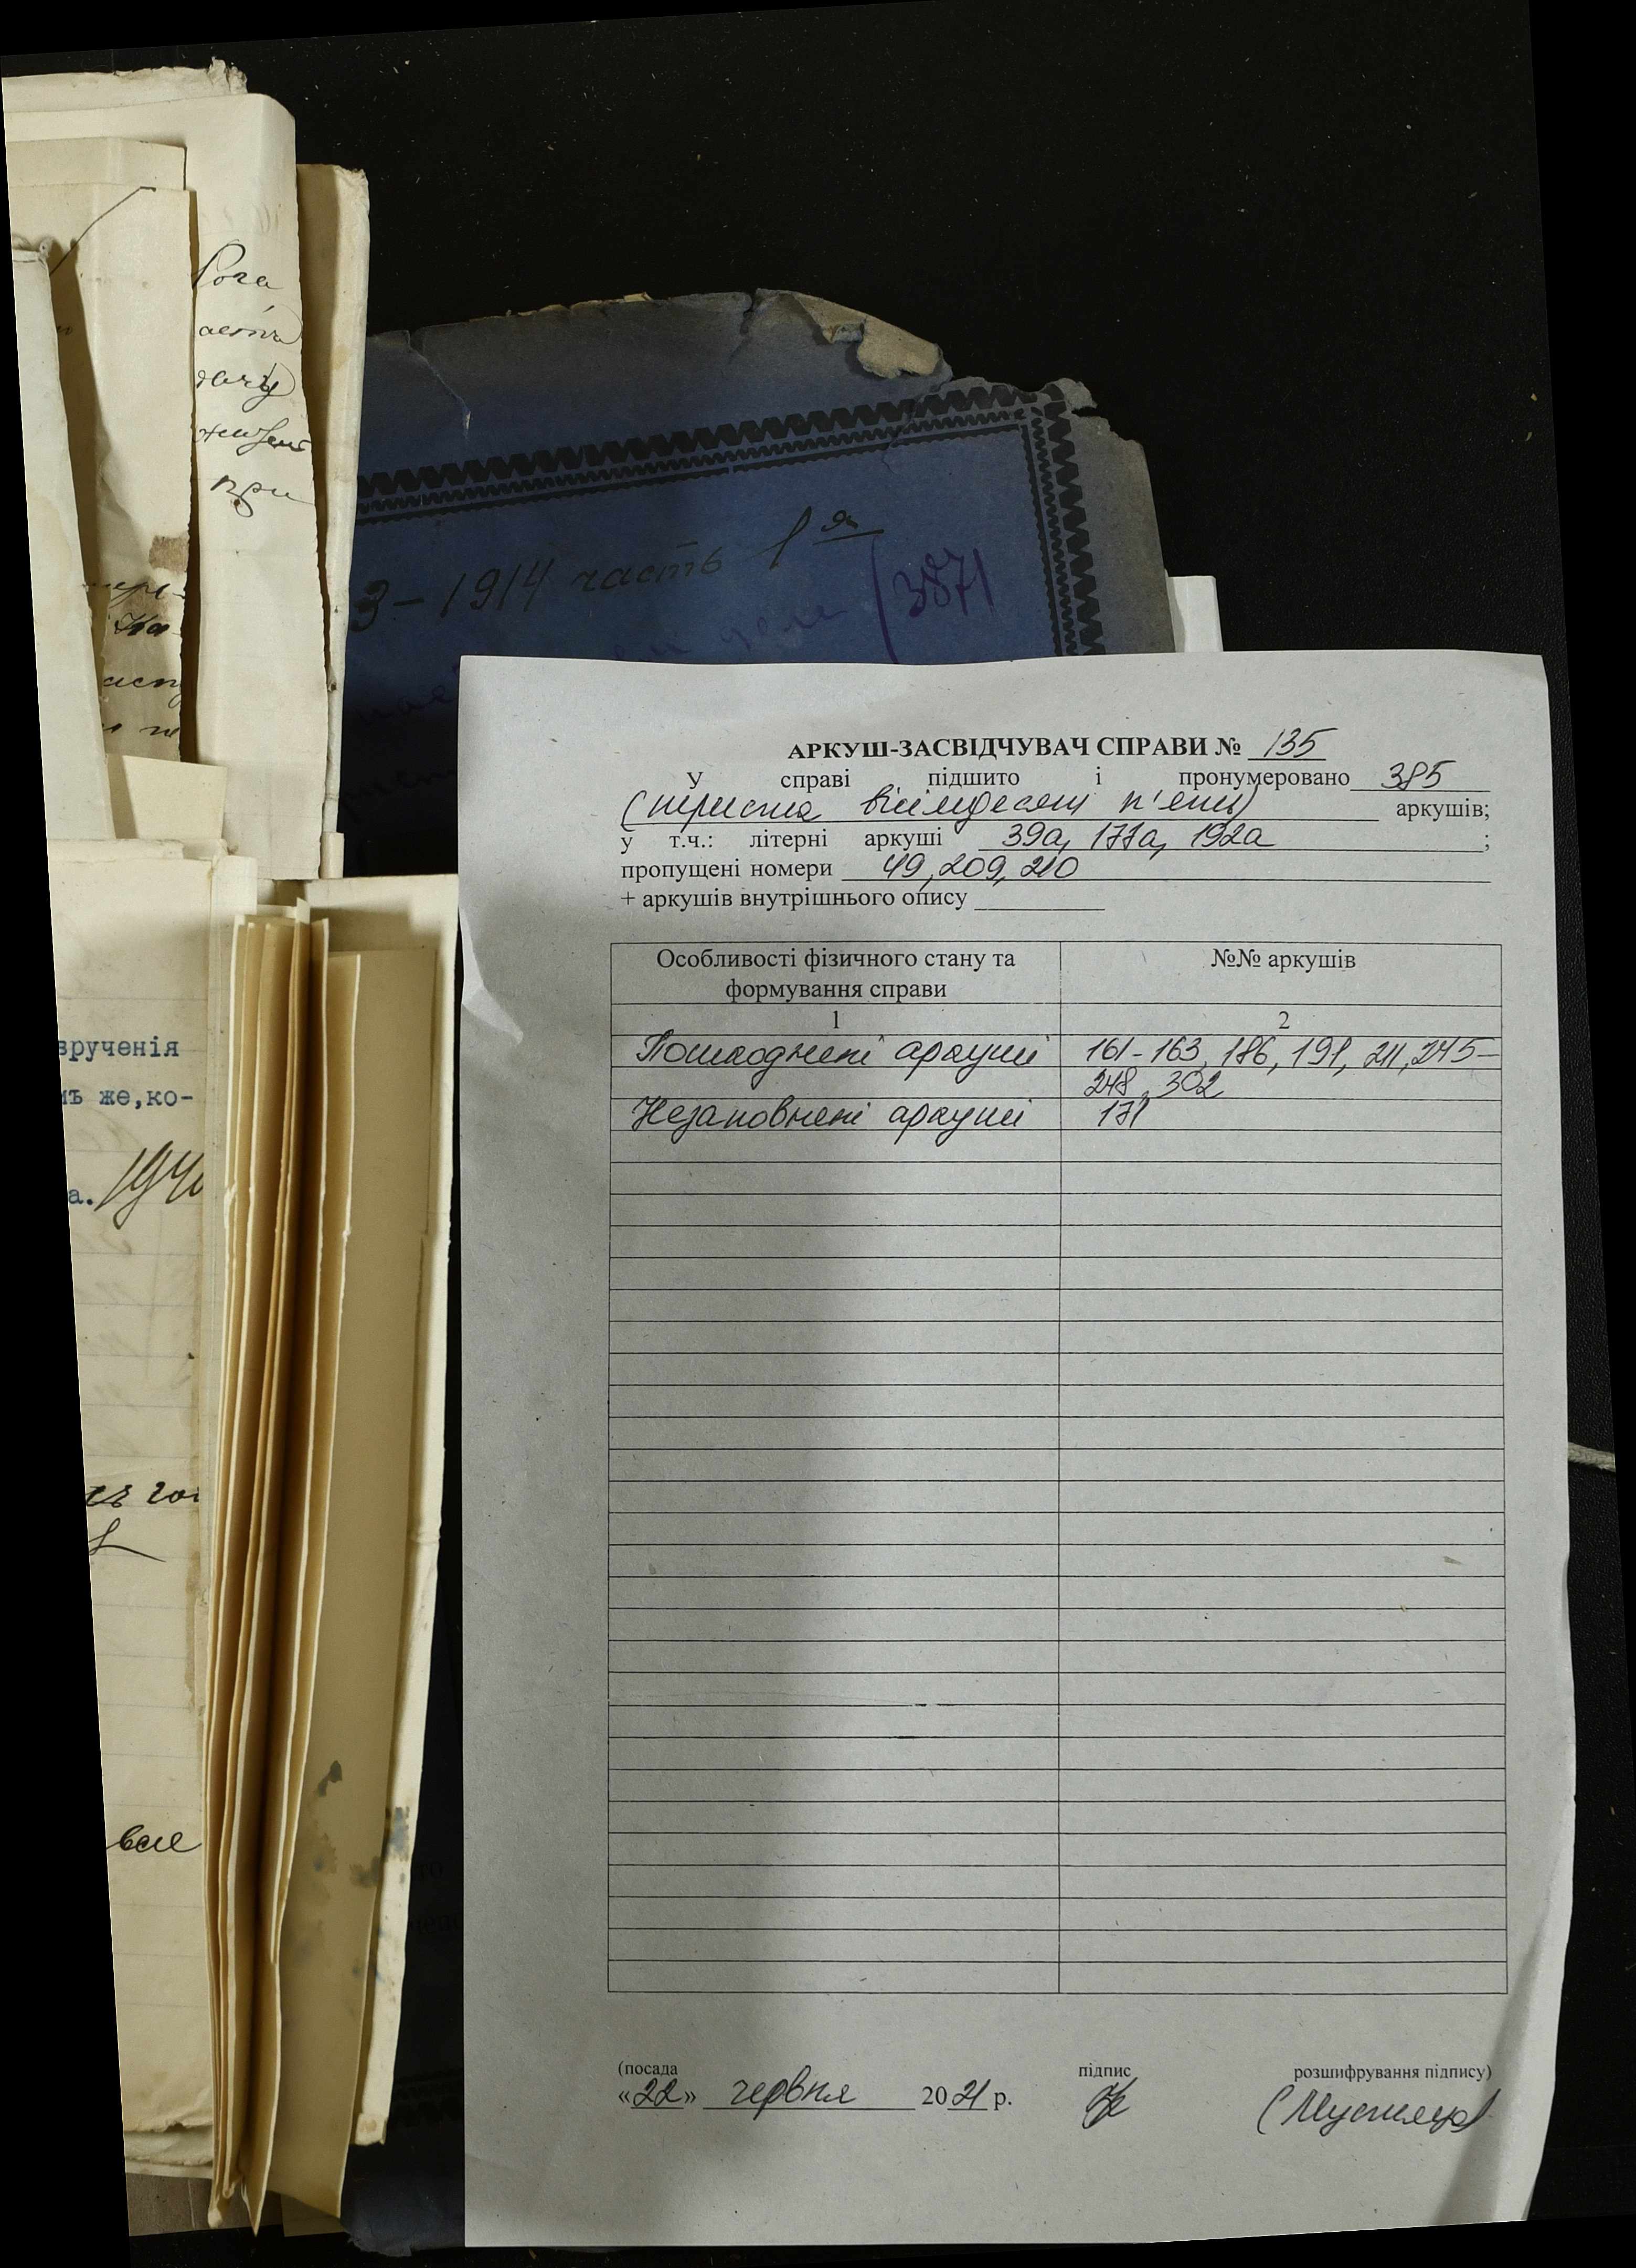 Рога
при
3 – 1914 часть 1я
(3871
зрученія
же,ко-
а. 194
все
АРКУШ-ЗАСВІДЧУВАЧ СПРАВИ № 135
У справі підшито і пронумеровано 385
(триста вісімдесят п'ять) аркушів;
у т.ч.: літерні аркуші 39а, 171а, 192а ;
пропущені номери 49, 209, 210
+ аркушів внутрішнього опису
Особливості фізичного стану та формування справи
№№ аркушів
1 2
Пошкоджені аркуші 161-163, 186, 191, 211, 245-
248, 302
Незаповнені аркуші 171
(посада підпис розшифрування підпису)
«22» червня 2021 р.